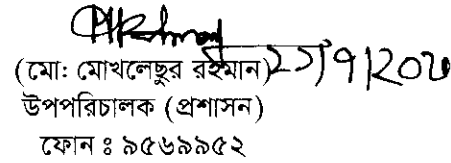 (মো: মোখলেছুর রহমান)
উপপরিচালক (প্রশাসন)
ফোন ঃ ৯৫৬৯৯৫২